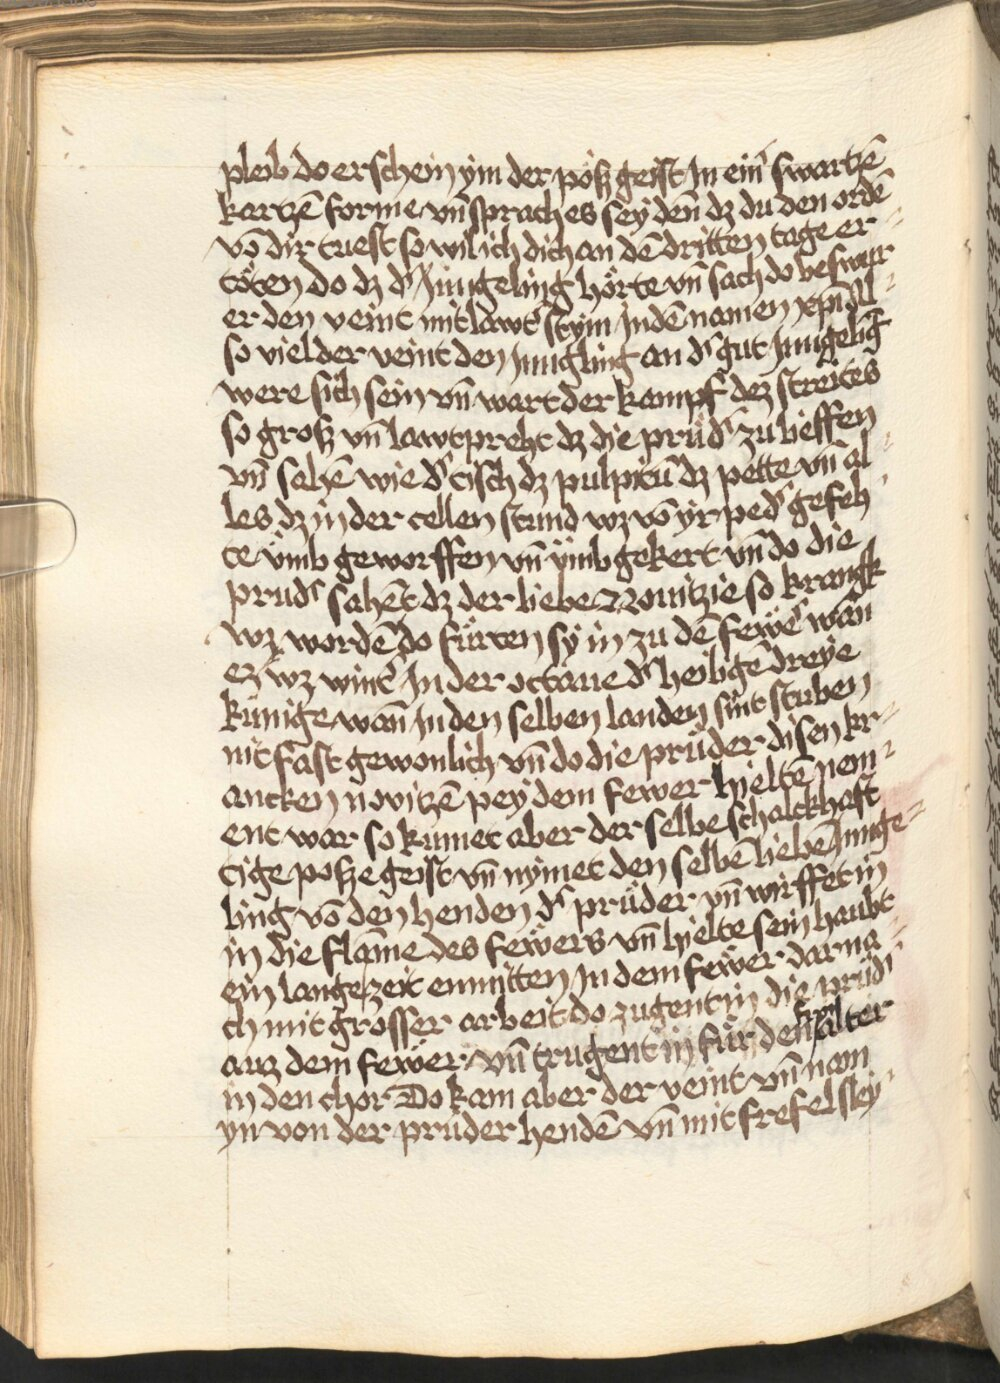 pleib do erschein ym der pöß geist In ein' swartzē
kartzē forme vn̄ sprach es sey dēn dz du den ordē
vō dir tuest so wil ich dich an dē dritten tage er⸗
töten do dz d' Jungeling hörte vn̄ sach do beswur
er den veint mit lawt' stym In dē namen xp̄i
so viel der veint den Jungling an d' gut Jungelīg
were sich sein vn̄ wart der kampf dez streites
so groß vn̄ lawtpreht dz die prüd' zu lieffen
vn̄ sahē wie d' tisch dz pulpitū dz pette vn̄ al⸗
les dz in der cellen stund wz vō yr ped' gefeh⸗
te ümb geworffen vn̄ ümb gekert vn̄ do die
prud' sahēt dz der liebe Nouitzie so krangk
wz wordē do fürten sy in zu dē fewē' wān
ez wz wint' In der octaue d' heiligē dreye
künige wān In den selben landen sint stuben
nit fast gewonlich vn̄ do die prüder disen kr⸗
ancken novitzē pey dem fewer hieltē nem⸗
ent war so kumet aber der selbe schalckhaft
tige poße geist vn̄ nymet den selbē liebē Junge⸗
ling vō den henden d' prüder vn̄ wirffet in
in die flāme des fewers vn̄ hielte sein haubt
ein lange zeit enmitten In dem fewer darna⸗
ch mit grosser arbeit do zugent in die prüd'
auz dem fewer vn̄ trugent in für den fron alter
in den chor Do kam aber der veint vn̄ nam
yn von der prüder hendē vn̄ mit frefel sley⸗